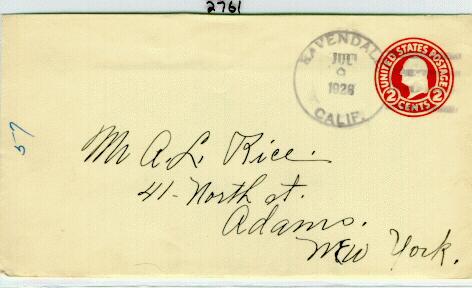 2761
RAVENDALE
JUL
1928
CALIF.
UNITED STATES POSTAGE
2 CENTS 2
57
Mr A. L. Rice.
41- North st.
Adams.
New York.